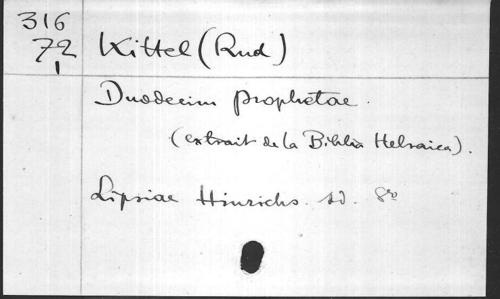 316
72 Kittel (Rud)
1
Duodecim prophetae.
(extrait de la Biblia Hebraica).
Lipsiae Hinrichs. sd. 8º